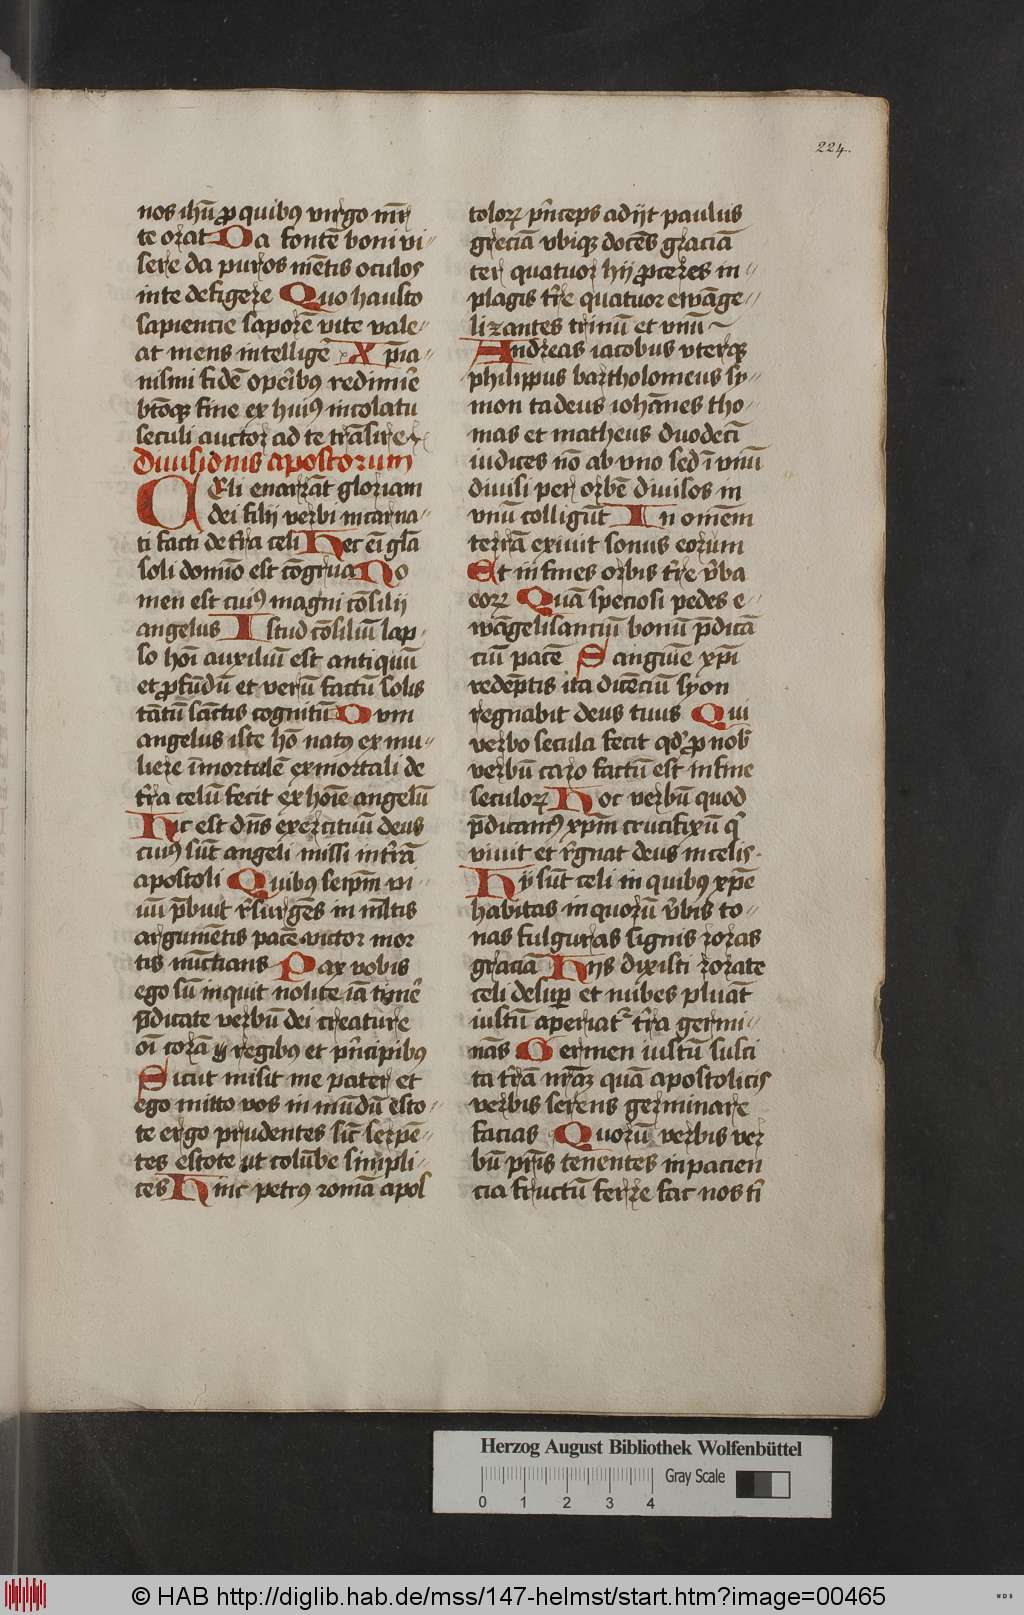 224.
nos ihū ꝓ quibꝰ virgo mr̄
te orat Da fontē boni vi⸗
sere da puros mētis oculos
in te defigere Quo hausto
sapiencie saporē vite vale⸗
at mens intelligē Xp̄ia⸗
nismi fidē opeībꝰ redimīe
btōqꝫ fine ex huiꝰ incolatu
seculi auctor ad te trāsire
Diuisionis apostorum
Celi enarrāt gloriam
dei filij verbi incarna⸗
ti facti de tr̄a celi Hec eī gl̄a
soli domīo est cōgrua No
men est cuiꝰ magni cōsilij
angelus Istud cōsiliū lap⸗
so hoī auxiliū est antiquū
et ꝓfūdū et verū factū solis
tātū sāctis cognitū Cvm
angelus iste hō natꝰ ex mu⸗
liere īmortalē ex mortali de
tr̄a celū fecit ex hoīe angelū
Hic est dn̄s exercituū deus
cuiꝰ sūt angeli missi in tr̄ā
apostoli Quibꝰ seip̄m vi⸗
uū p̄buit r̄surgēs in ml̄tis
argumētis pacē victor mor
tis nūctians Pax vobis
ego sū inquit nolite iā timē
p̄dicate verbū dei creature
oī corā regibꝰ et pn̄cipibꝰ
Sicut misit me pater et
ego mitto vos in mūdū esto⸗
te ergo prudentes sic̄ serpē⸗
tes estote ut colūbe simpli⸗
ces Hinc petrꝰ romā apol
tolorꝫ pn̄ceps adijt paulus
greciā vbiqꝫ docēs graciā
ter quatuor hij ꝓceres in⸗
plagis tr̄e quatuor ewāge⸗
lizantes trinū et vnū
Andreas iacobus vterqꝫ
philippus bartholomeus sy⸗
mon tadeus iohānes tho⸗
mas et matheus duodecī
iudices nō ab vno sed ī vnū
diuisi per orbē diuisos in
vnū colligūt In omēm
terrā exiuit sonus eorum
Et in fines orbis tr̄e v̄ba
eorꝫ Quā speciosi pedes e⸗
wāgelisanciū bonū p̄dicā
ciū pacē Sanguīe xp̄i
redēptis ita dicēciū syon
regnabit deus tuus Qui
verbo secula fecit qd̄ ꝓ nob̄
verbū caro factū est in fine
seculorꝫ Hoc verbū quod
p̄dicamꝰ xp̄m crucifixū qͥ
viuit et r̄gnat deus in celis.
Hij sūt celi in quibꝰ xp̄e
habitas in quorū v̄bis to⸗
nas fulguras signis roras
graciā Hijs dixisti rorate
celi desup̄ et nubes pluāt
iustū aperiat᷑ tr̄a germi⸗
nās Germen iustū susci
ta tr̄ā nr̄āꝫ quā apostolicis
verbis serens germinare
facias Quorū verbis ver
bū pr̄is tenentes in pacien
cia fructū ferre fac nos tͥ
Herzog August Bibliothek Wolfenbüttel
Gray Scale
0 1 2 3 4
© HAB http://diglib.hab.de/mss/147-helmst/start.htm?image=00465